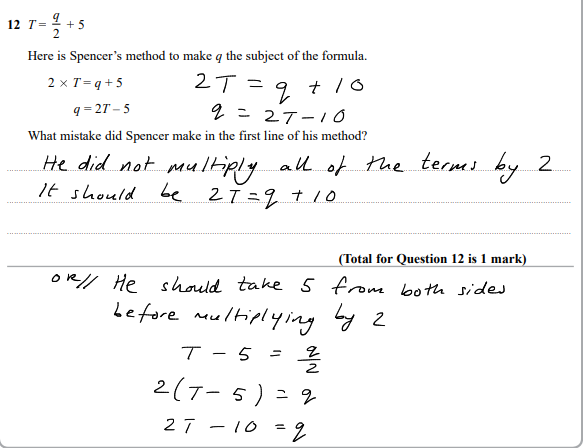 12 T = q/2 + 5
Here is Spencer's method to make q the subject of the formula.
2 × T = q + 5
2T = q + 10
q = 2T – 5
q = 2T – 10
What mistake did Spencer make in the first line of his method?
He did not multiply all of the terms by 2
It should be 2T = q + 10
(Total for Question 12 is 1 mark)
OR// He should take 5 from both sides
before multiplying by 2
T – 5 = q/2
2(T – 5) = q
2T – 10 = q